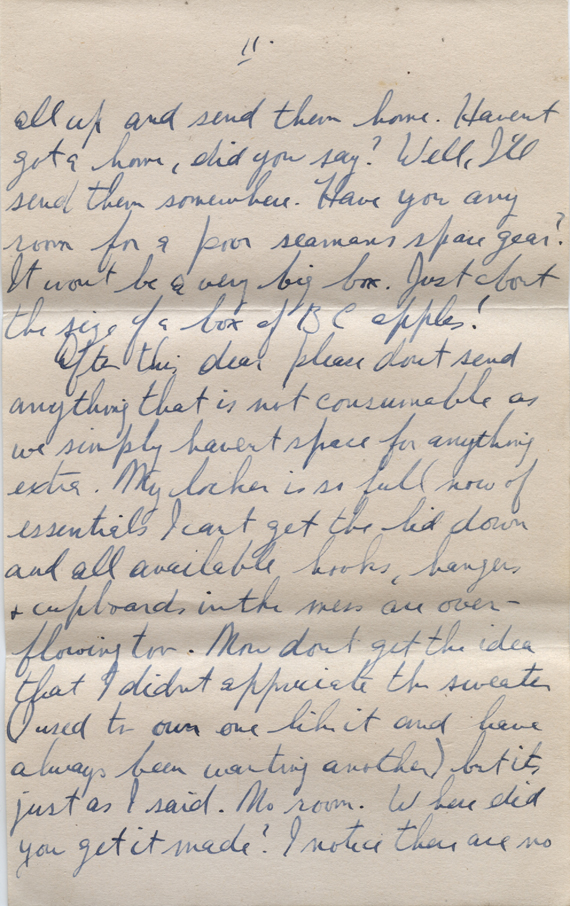 11.
all up and send them home. Havent
got a home, did you say? Well, I'll
send them somewhere. Have you any
room for a poor seamans spare gear?
It won't be a very big box. Just about
the size of a box of B C apples!
After this dear please dont send
anything that is not consumable as
we simply havent space for anything
extra. My locker is so full now of
essentials I cant get the lid down
and all available hooks, hangers
+ cupboards in the mess are over-
flowing too. Now dont get the idea
that I didnt appriciate the sweater
(I used to own one like it and have
always been wanting another) but its
just as I said. No room. Where did
you get it made? I notice there are no